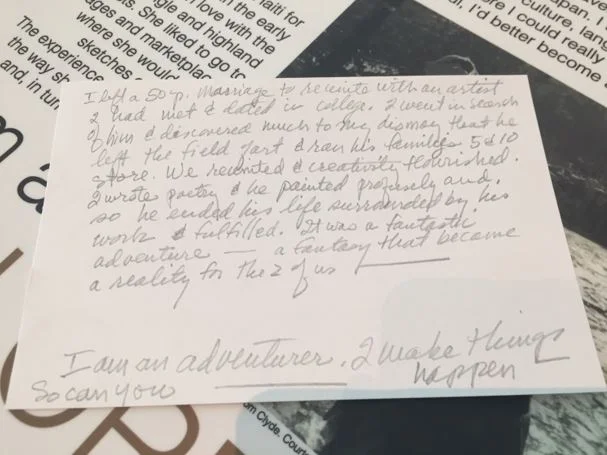 Haiti for
in the early
love with the
gle and highland
ges and marketpla
s. She liked to go to
where she would
sketches
The experience
the way sh
and, in tur
apan. I
culture, lan
re I could really
l, I'd better become
I left a 50 yr. marriage to reunite with an artist
I had met & dated in college. I went in search
of him & discovered much to my dismay that he
left the field of art & ran his families 5 & 10
store. We reunited & creativity flourished.
I wrote poetry & he painted profusely and,
so he ended his life surrounded by his
work & fulfilled. It was a fantastic
adventure — a fantasy that became
a reality for the 2 of us
I am an adventurer. I make things
happen
So can you
m Clyde. Court